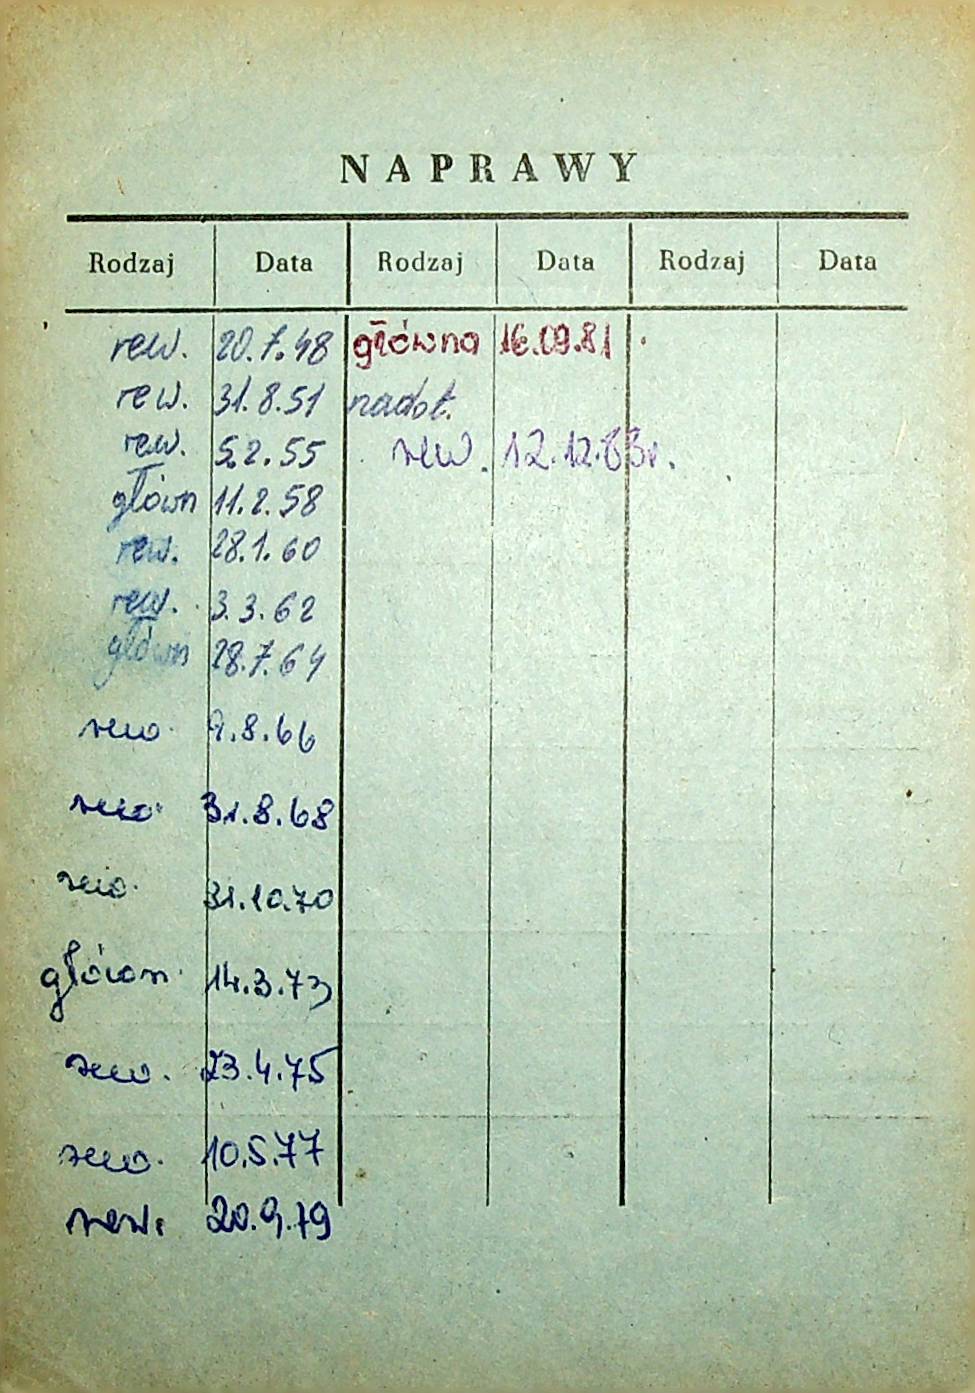 NAPRAWY
Rodzaj Data Rodzaj Data Rodzaj Data
rew. 20.7.48 główna 16.09.81
rew. 31.8.51 nadot.
rew. 5.2.55 rew. 12.12.83r.
główn 11.2.58
rew. 28.1.60
rew. 3.3.62
główn 28.7.64
rew. 9.8.66
rew. 31.8.68
rew. 31.10.70
główn. 14.3.73
rew. 23.4.75
rew. 10.5.77
rew. 20.9.79